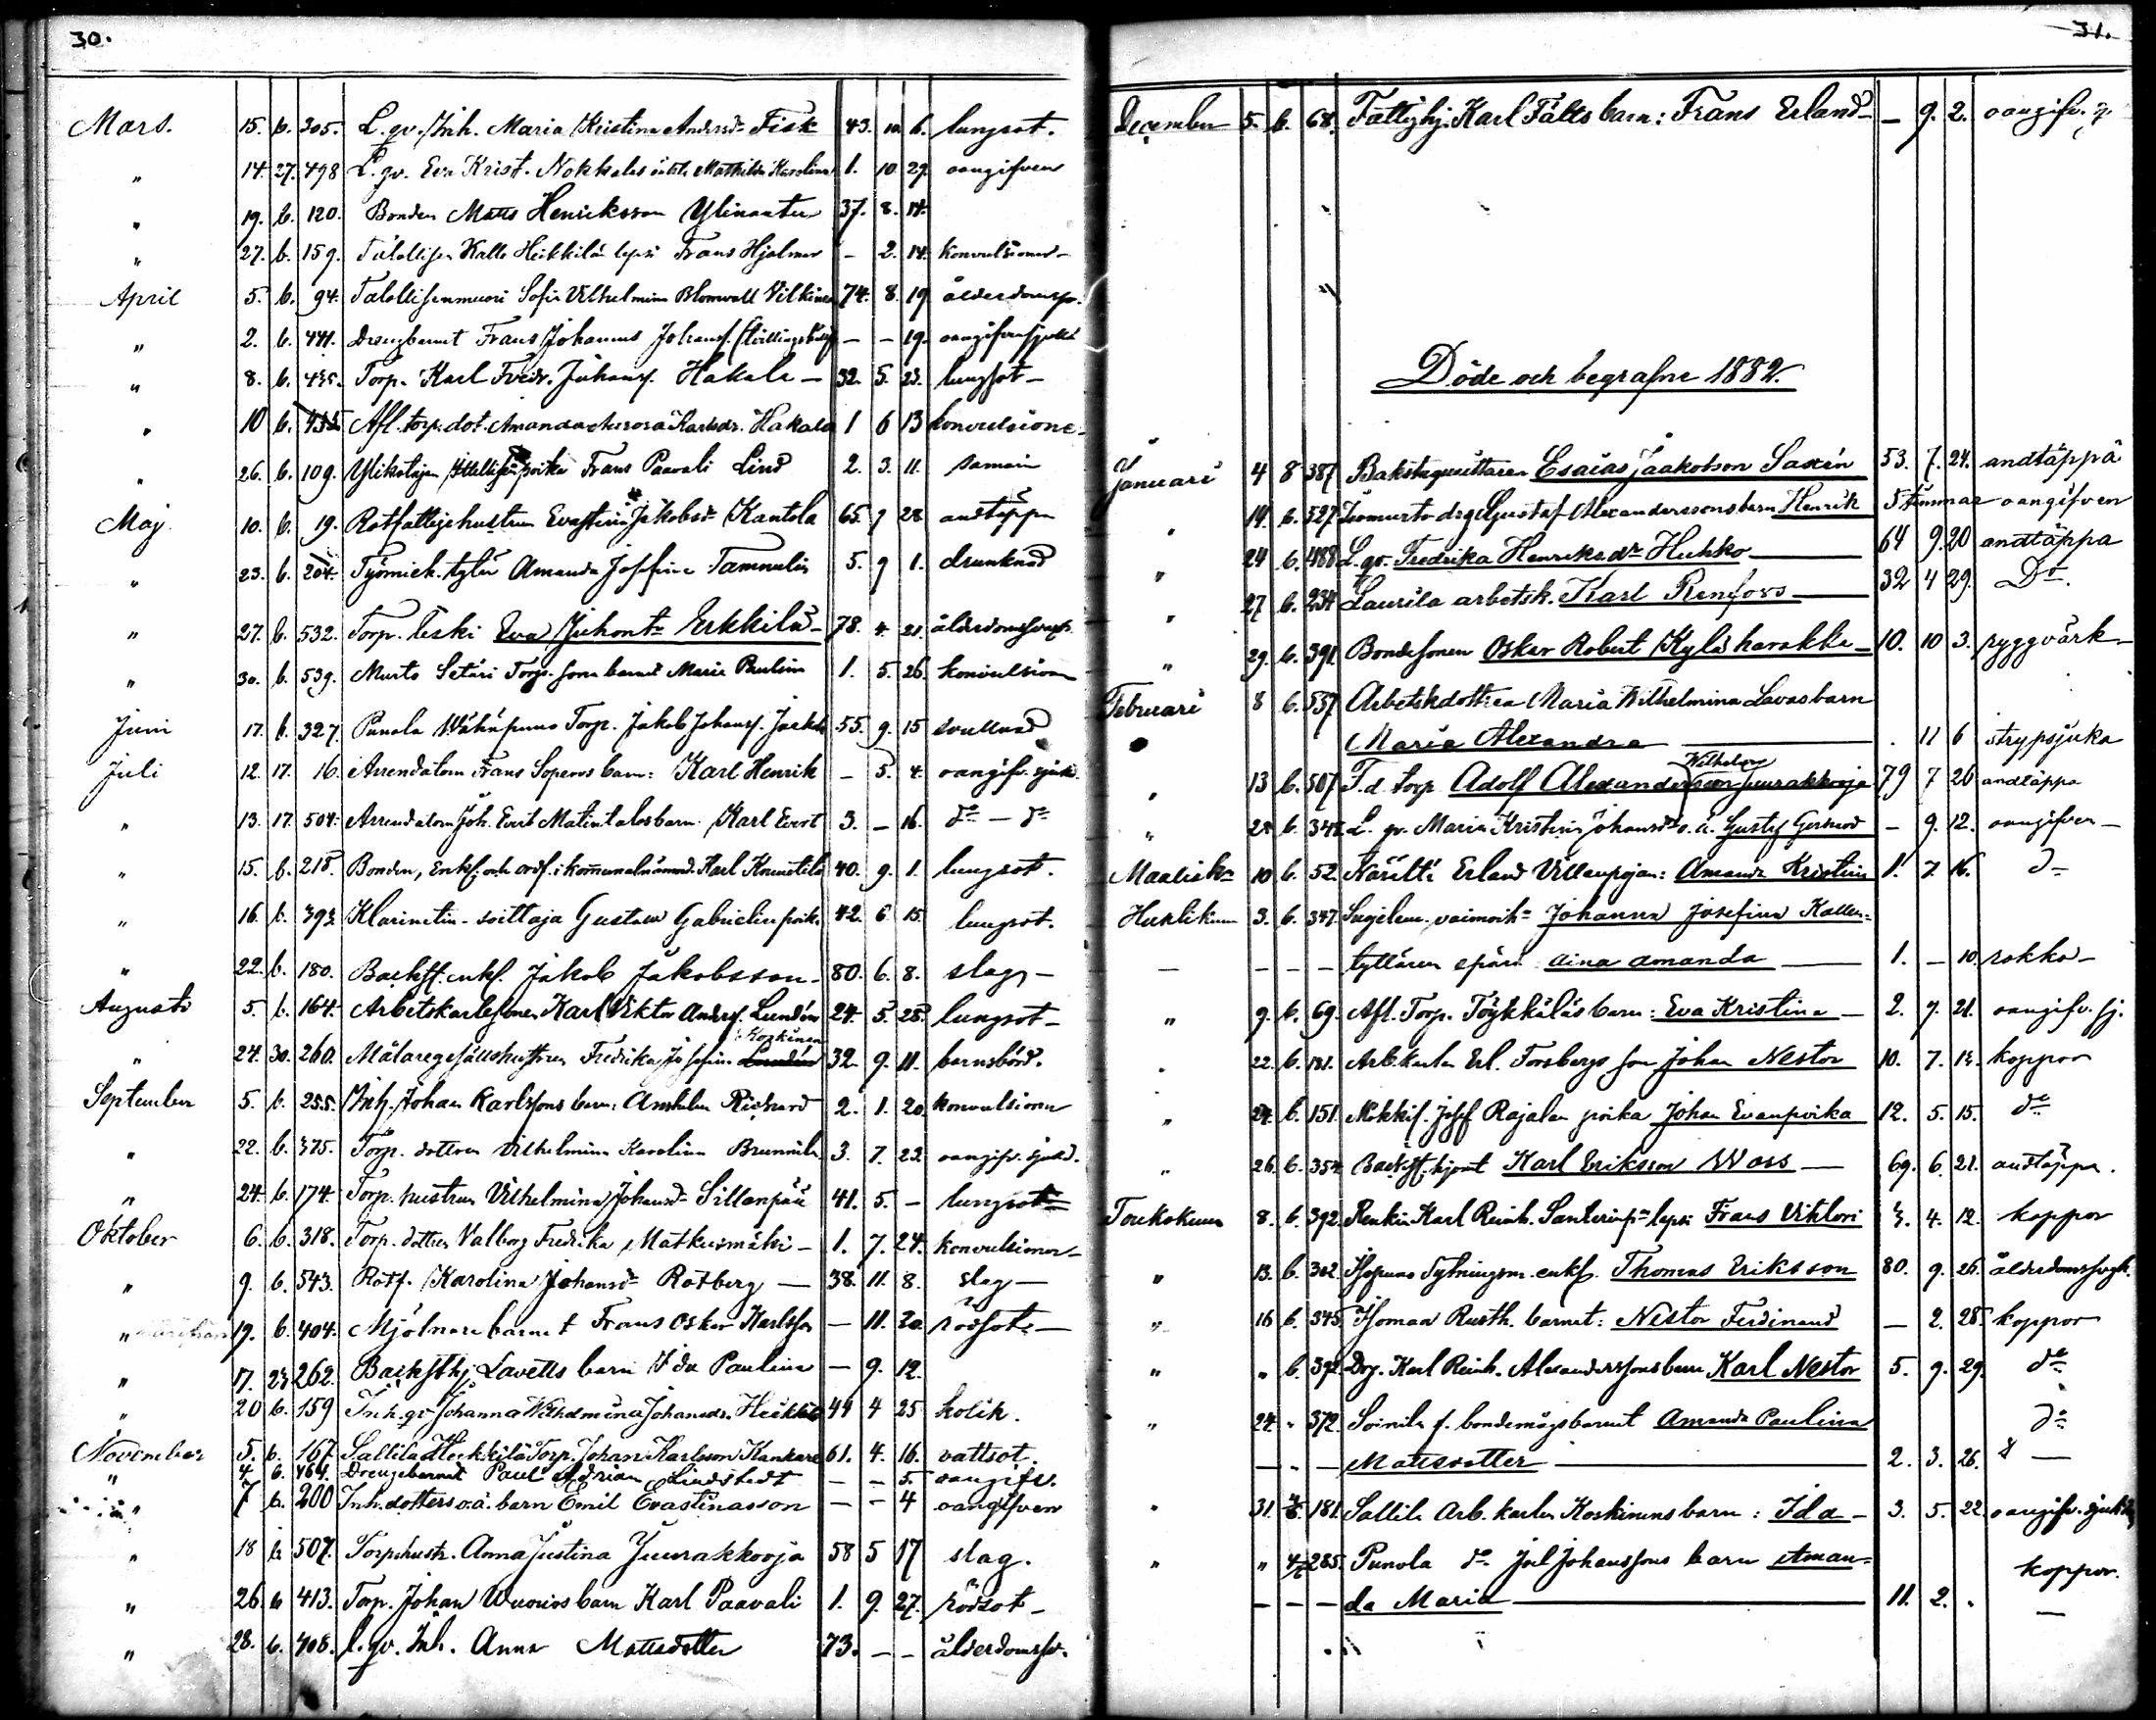 30.
Mars. 15. 6. 305. L. qv. Inh. Maria Kristina Andersdr Fisk 43. 10. 6. lungsot.
" 14. 27. 498 L. qv. Eva Krist. Nokkalas oäkta Mathilda Karolina 1. 10 29. oangifven
" 19. 6. 120. Bonden Matts Henriksson Ylinaatu 37. 8. 14.
" 27. 6. 159. Talollisen Kalle Heikkilän lapsi Frans Hjalmar – 2. 14. konvulsioner –
April 5. 6. 94. Talollisenmuori Sofia Vilhelmina Blomvall Vilkinen 74. 8. 19 ålderdomssv.
" 2. 6. 441. Drengbarnet Frans Johannes Johanss. – – 19. oangifven
" 8. 6. 435. Torp. Karl Fredr. Juhanss. Hakala – 32. 5. 23. lungsot –
" 10 6. 435 Afl. torp. dot. Amanda Aurora Karlsdr. Hakala 1 6 13 konvulsione –
" 26. 6. 109. poika Frans Paavali Lind 2. 3. 11. samain
Maj 10. 6. 19. Rotfattighustrun Evastina Jakobsdr Kantola 65. 9 28 andtäppa
" 23. 6. 204. Työmieh. tytär Amanda Josefina Tammelin 5. 9 1. drunknad
" 27. 6. 532. Torp. leski Eva Juhontr Erkkilä – 78. 4. 21. ålderdomssvagh.
" 30. 6. 539. Murto Setäri Torp. sons barnet Maria Paulina 1. 5. 26. konvulsion
Juni 17. 6. 327. Punola Torp. Jakob Johanss. 55. 9. 15 svullnad
Juli 12. 17. 16. Arrendatorn Frans Soperos barn: Karl Henrik – 5. 4. oangifv. sjuk.
" 13. 17. 504. Arrendatorn Joh. Evert Matintalos barn. Karl Evert 3. – 16. do – do
" 15. 6. 218. Bonden, Enkl. och ordf. i kommunalnämnd. Karl Knuutila 40. 9. 1. lungsot.
" 16. 6. 393 Klarinetin-soittaja Gustava Gabrielin poika 42. 6 15. lungsot.
" 22. 6. 180. Backst. enkl. Jakob Jakobsson – 80. 6. 8. slag –
Augusti 5. 6. 164. Arbetskarlssonen Karl Viktor Anderss. Lundén 24. 5. 25. lungsot –
Koskinen
" 24. 30. 260. Målaregesällshustrun Fredrika Josefina Lundén 32. 9. 11. barnsbörd.
September 5. 6. 255. Inh. Johan Karlssons barn: Anshelm Richard 2. 1. 20. konvulsion
" 22. 6. 375. Torp. dottren Vilhelmina Karolina Brunnila 3. 7. 23. oangifv. sjukd.
" 24. 6. 174. Torp. hustrun Vilhelmina Johansdr Sillanpää 41. 5. – lungsot
Oktober 6. 6. 318. Torp. dottren Valborg Fredrika Matkusmäki – 1. 7. 24. konvulsioner –
" 9. 6. 543. Rotf. Karolina Johansdr Rotberg – 38. 11. 8. slag –
" 19. 6. 404. Mjölnare barnet Frans Oskar Karlsson – 11. 20. rödsot –
" 17. 23 262. Backsthj. Lavetts barn Ida Paulina – 9. 12.
" 20 6. 159 Inh. qv Johanna Wilhelmina Johansdr. Heikkilä 44 4 25 kolik.
November 5. 6. 167. Sallila Heikkilä Torp. Johan Karlsson Kankare 61. 4. 16. vattsot.
" 4. 6. 464. Drengebarnet Paul Adrian Lindstedt – – 5. oangifv.
" 7 6. 200 Inh. dotters o.ä. barn Emil Evastinasson – – 4 oangifven
" 18 6 507. Torphustr. Anna Justina Juurakkooja 58 5 17 slag.
" 26. 6 413. Torp. Johan Wuorios barn Karl Paavali 1. 9. 27. rödsot –
" 28. 6. 408. L. qv. Inh. Anna Mattsdotter 73. – – ålderdomssv.
31.
December 5. 6. 68. Fattighj. Karl Fälts barn: Frans Erland – – 9. 2. oangifv.
Döde och begrafne 1882.
Januari 4 8 387 Bakstuguittaren Esaias Jaakobson Saxén 53. 7. 24. andtäppa
" 14. 6. 527 drg Gustaf Alexanderssons barn Henrik 5 timmar oangifven
" 24 6. 488 L. qv. Fredrika Henriksdr Huhko 64 9. 20 andtäppa
" 27 6. 234 Laurila arbetsk. Karl Renfors 32 4 29. Do.
" 29. 6. 391. Bondesonen Oskar Robert Kyläharakka – 10. 10 3. ryggvärk –
Februari 8 6. 537 Arbetskdottren Maria Wilhelmina Lavas barn
Maria Alexandra . 11 6 strypsjuka
Wilhelm
" 13 6. 507 F.d. torp. Adolf Alexandersson Juurakkooja 79 7 26 andtäppa
" 28 6. 348. L. qv. Maria Kristina Johansdr o. ä. Gustaf Gerhard – 9. 12. oangifven –
Maalisk. 10 6. 52. Räätäli Erland Villenpojan: Amanda Kristina 1. 7. 16. do
Huhtikuu 3. 6. 347. vaimovih. Johanna Josefina Kallen-
– – – – tyttären epärä: Aina Amanda 1. – 10. rokko –
" 9. 6. 69. Afl. Torp. Töykkäläs barn: Eva Kristina – 2. 7. 21. oangifv. sj.
" 22. 6. 181. Arb. karlen Erl. Forsbergs son Johan Nestor 10. 7. 13. koppor
" 24. 6. 151. Nokkis. Josef Rajalan poika Johan Evanpoika 12. 5. 15. do
" 26. 6. 354. Backst. hjont Karl Eriksson Wass – 69. 6. 21. andtäppa.
Toukokuu 8. 6. 392. Renkin Karl Reinh. Santerinp. lapsi Frans Viktori 3. 4. 12. koppor
" 13. 6. 302 Isopuno Sytningsm. enkl. Thomas Eriksson 80. 9. 26. ålderdomssvgh.
" 16 6. 345. Isomaa Rusth. barnet: Nestor Ferdinand – 2. 28. koppor
" " 6. 392. Drg. Karl Reinh. Alexanderssons barn Karl Nestor 5. 9. 29. do
" 24. " 372. Soinila f. bondemågs barnet Amanda Paulina do
– – – Mattsdotter 2. 3. 26. –
" 31. 181. Sallila Arb. karlen Koskinens barn: Ida – 3. 5. 22. oangifv. sjukd.
" " 285. Punola do Joel Johanssons barn Aman- koppor.
– – – da Maria 11. 2. . –